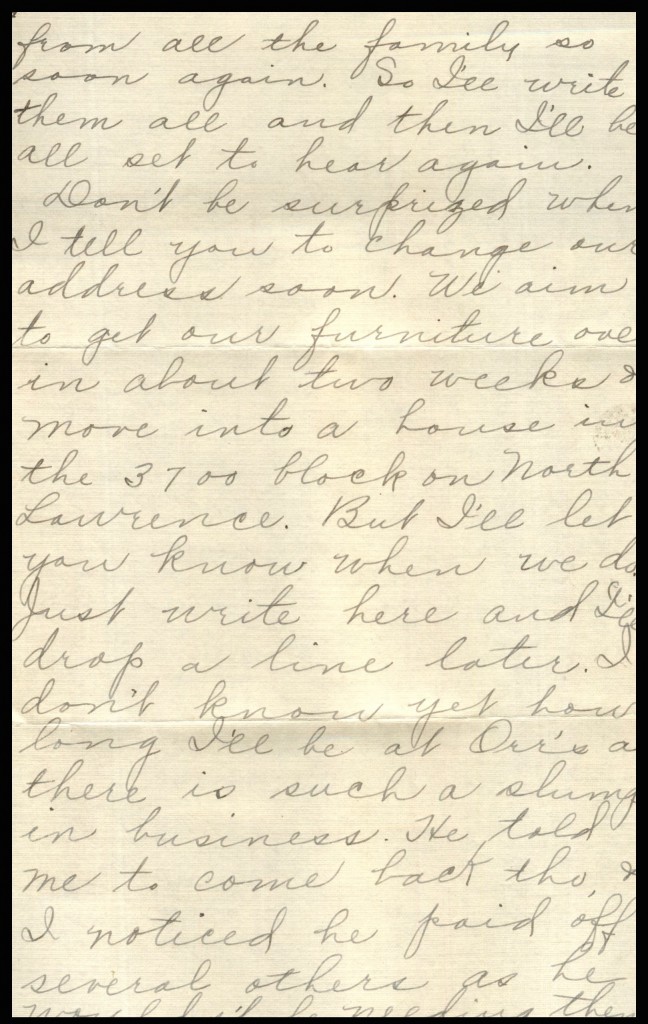 from all the family so
soon again. So I'll write
them all and then I'll be
all set to hear again.
Don't be surprized when
I tell you to change our
address soon. We aim
to get our furniture ove
in about two weeks &
move into a house in
the 3700 block on North
Lawrence. But I'll let
you know when we do.
Just write here and I'll
drop a line later. I
don't know yet how
long I'll be at Orr's a
there is such a slump
in business. He told
me to come back tho, &
I noticed he paid off
several others as he
needing them